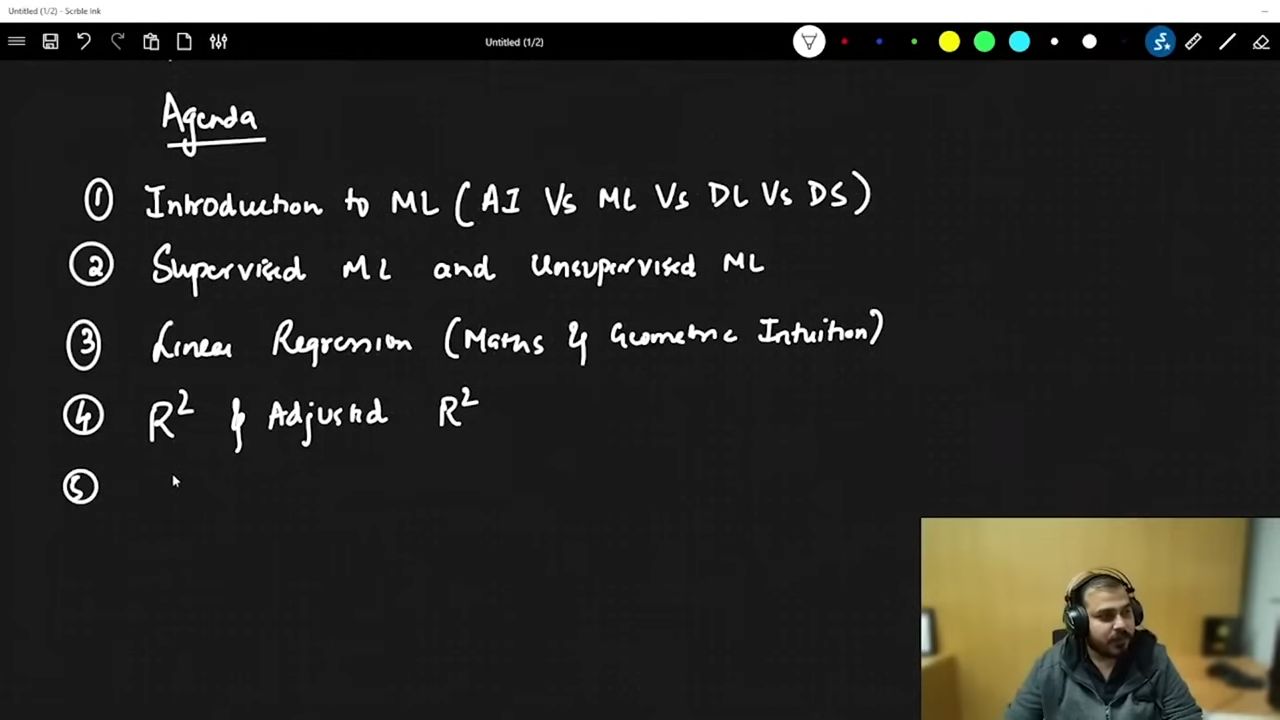 Untitled (1/2) - Scrble Ink
Untitled (1/2)
Agenda
① Introduction to ML (AI Vs ML Vs DL Vs DS)
② Supervised ML and Unsupervised ML
③ Linear Regression (Maths & Geometric Intuition)
④ R² & Adjusted R²
⑤